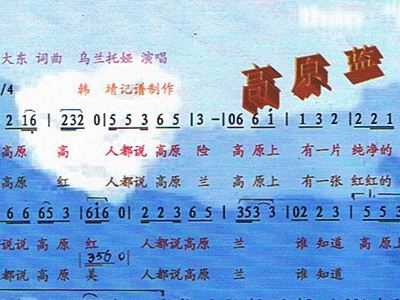 高原蓝
大东 词曲 乌兰托娅 演唱
/4 韩 靖记谱制作
2 16 | 232 0 | 5 5 3 6 5 | 3 - | 06 6 1 | 1 3 2 | 2 2 1
高原 高 人都说 高原 险 高原上 有一片 纯净的
高原 红 人都说 高原 兰 高原上 有一张 红红的
2 2 3 6 65 3 | 616 0 | 2 2 3 6 5 | 353 3 | 0 1 2 3 | 5 5 3
说说 高原 红 人都说高原 兰 谁知道 高原上
| 356 0 |
都说 高原 美 人都说高原 兰 谁知道